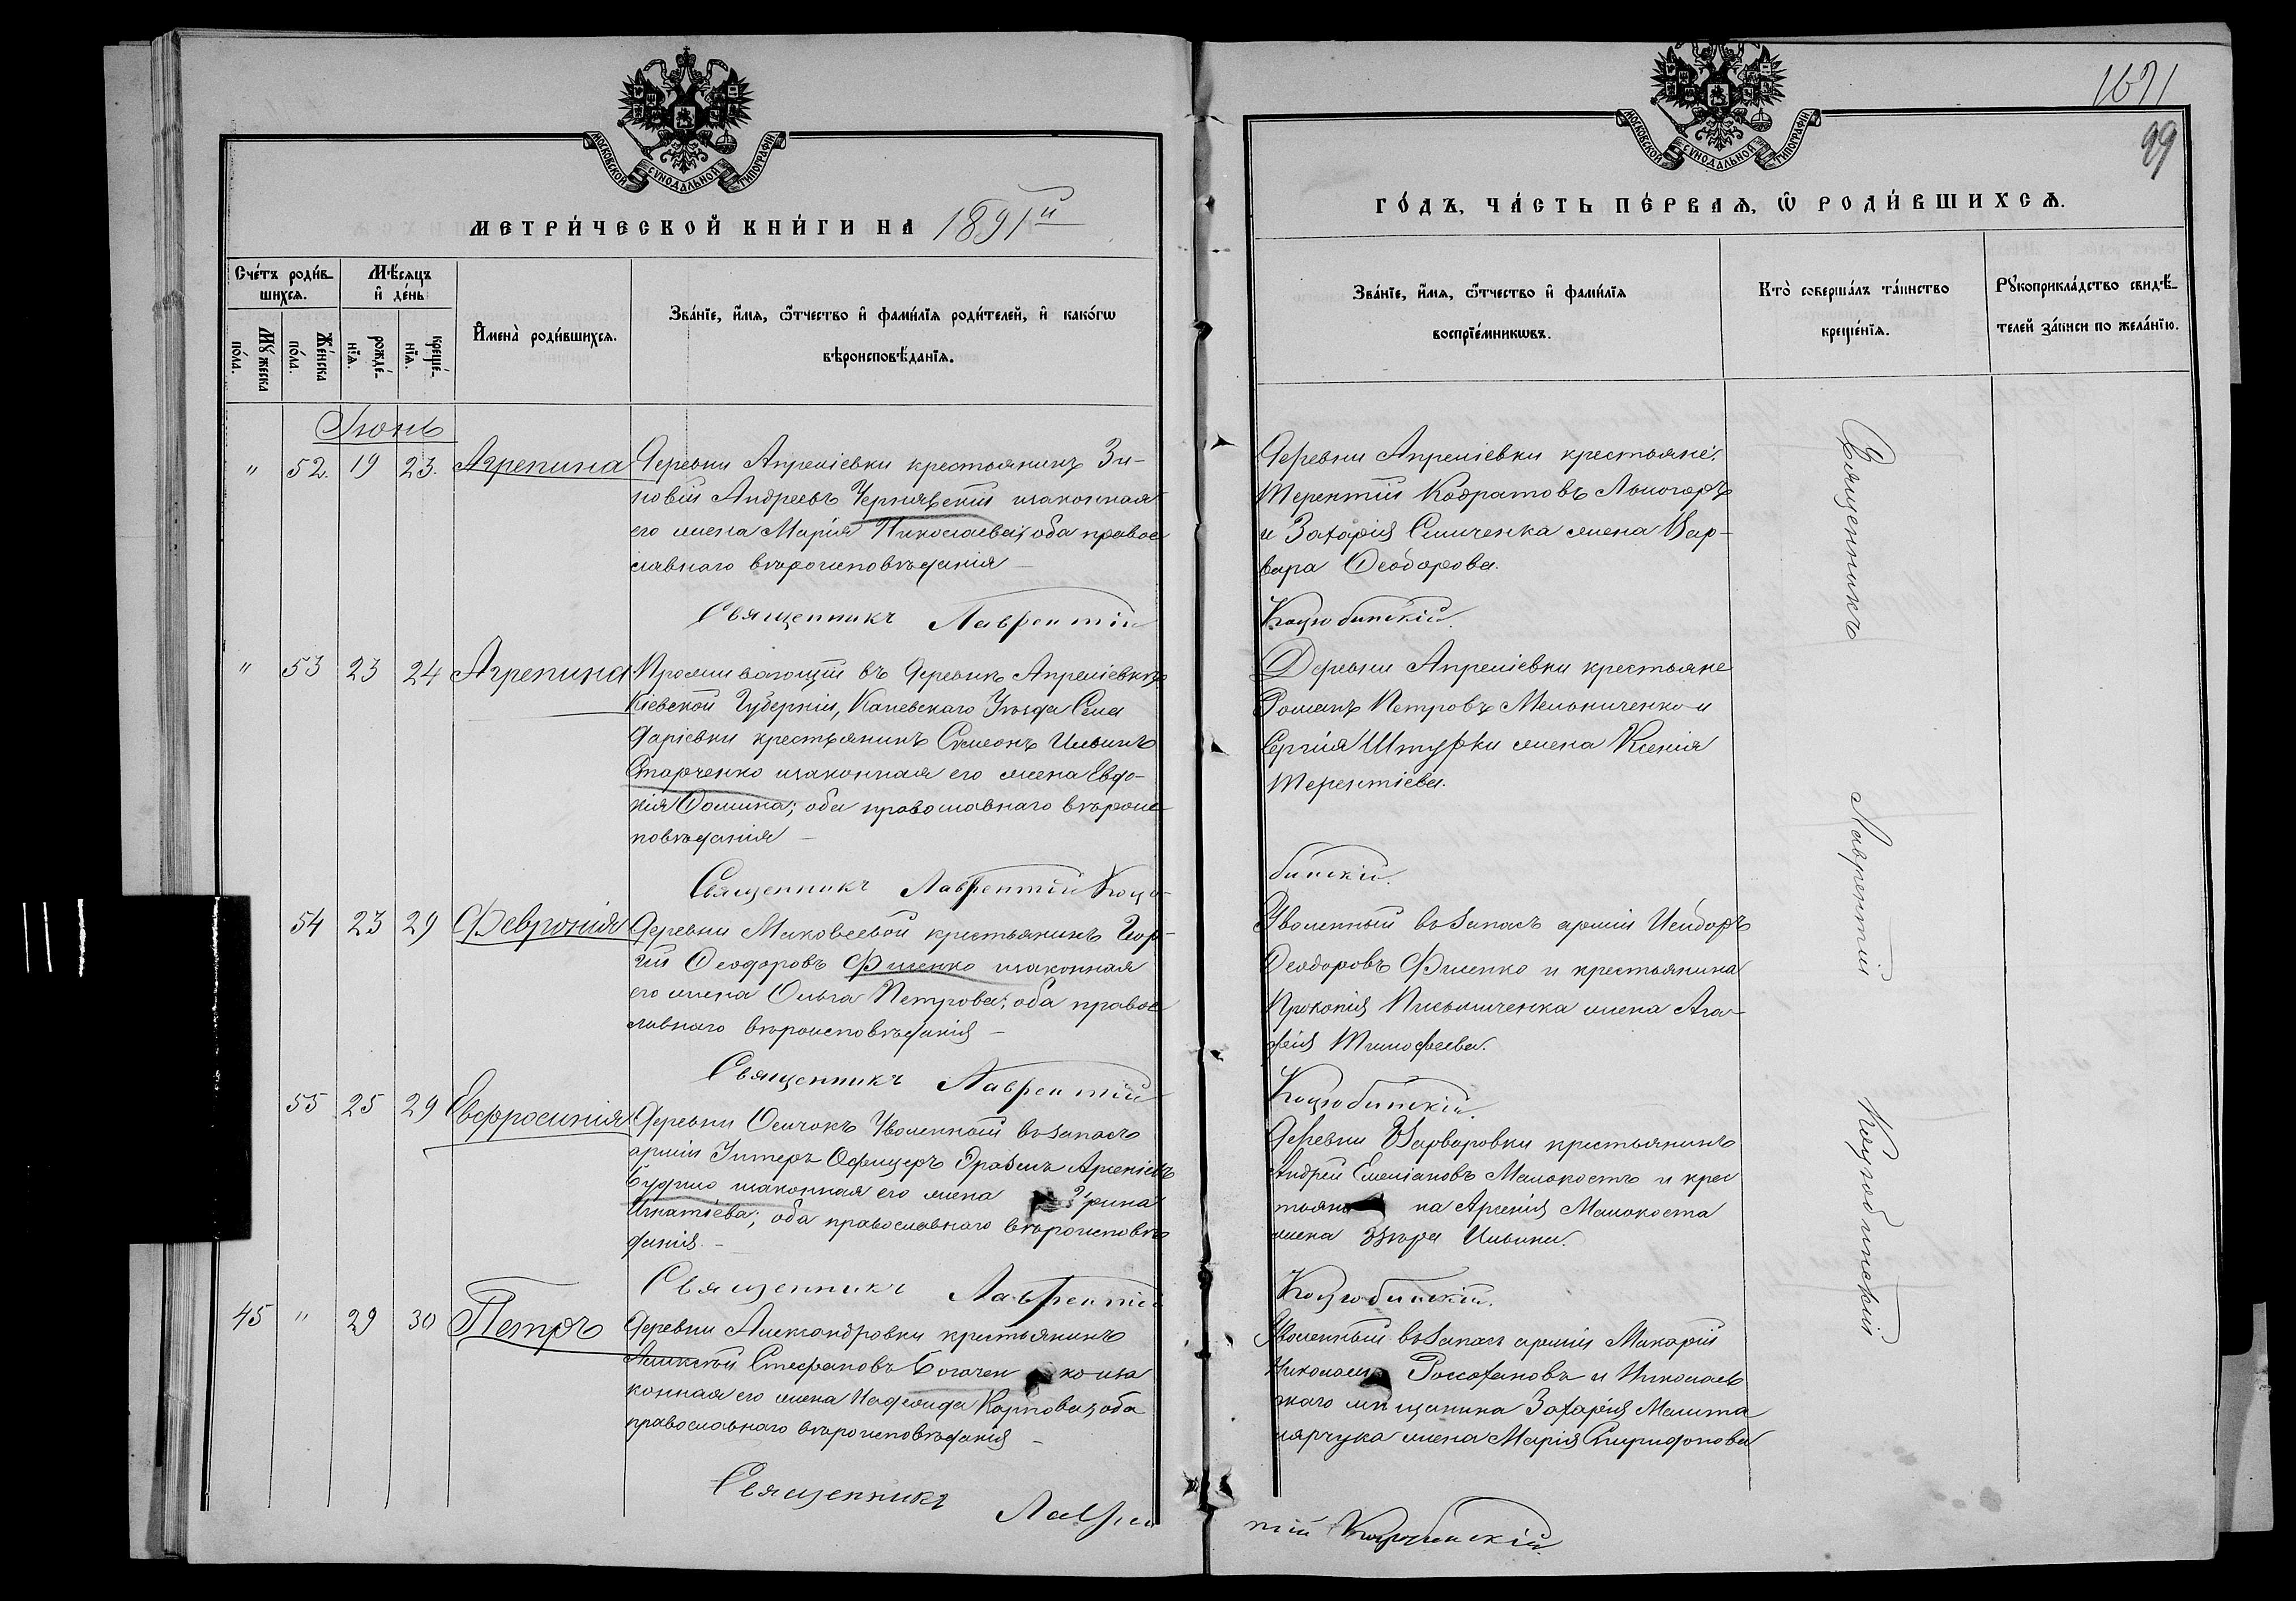 МОСКОВСКОЙ СѴНОДАЛЬНОЙ ТИПОГРАФІИ
МЕТРИ́ЧЕСКОЙ КНИ́ГИ НА 1891й
Сче́тъ роди́в-
шихсѧ.
Мѣ́сѧцъ
и҆ де́нь
Мꙋ́жеска по́ла.
Же́нска по́ла.
рожде́-нїѧ.
креще́-нїѧ.
И҆мена̀ роди́вшихсѧ.
Зва́нїе, и҆́мѧ, ѻ҆́тчество и҆ фами́лїѧ роди́телей, и҆ како́гѡ
вѣроисповѣ́данїѧ.
Іюнь
" 52. 19 23. Агрепина Деревни Апреліевки крестьянинъ Зи-
новій Андреевъ Чернявскій изаконная
его жена Марія Николаева; оба правос
лавнаго вѣроисповѣданія —
Священникъ Лаврентій
" 53 23 24 Агрепина Проживающій въ деревнѣ Апреліевкѣ
Кіевской Губерніи, Каневскаго Уѣзда Села
Даріевки крестьянинъ Симеонъ Ильинъ
Старченко изаконная его жена Евдо-
кія Фомина; оба православнаго вѣроис
повѣданія —
Священникъ Лаврентій Коцю-
54 23 29 Февронія Деревни Маковеевой крестьянинъ Геор-
гій Феодоровъ Фисенко изаконная
его жена Ольга Петрова; оба правос
лавнаго вѣроисповѣданія —
Священникъ Лаврентій
55 25 29 Евфросинія Деревни Осичокъ Уволенный въ запасъ
арміи Унтеръ Офицеръ Арсеніевъ
изаконная его жена Ирина
Игнатіева; оба православнаго вѣроисповѣ
данія. —
Священникъ Лаврентій
45 " 29 30 Петръ Деревни Александровки крестьянинъ
Алексѣй Стефановъ Богачен ко иза
конная его жена Карпова; оба
православнаго вѣроисповѣданія —
Священникъ Лаврен
1671
99
МОСКОВСКОЙ СѴНОДАЛЬНОЙ ТИПОГРАФІИ
ГО́ДЪ, ЧА́СТЬ ПЕ́РВАѦ, Ѽ РОДИ́ВШИХСѦ.
Зва́нїе, и҆́мѧ, ѻ҆́тчество и҆ фами́лїѧ
воспрїе́мникѡвъ.
Кто̀ соверша́лъ та́инство
креще́нїѧ.
Рꙋкоприкла́дство свидѣ́-
телей за́писи по жела́нїю.
Деревни Апреліевки крестьяне:
Терентій Кодратовъ
и Захарія жена Вар-
вара Феодорова.
Коцюбинскій.
Деревни Апреліевки крестьяне
Романъ Петровъ Мельниченко и
Сергія Штурфы жена Ксенія
Терентіева.
бинскій.
Уволенный въ запасъ арміи Исидоръ
Феодоровъ Фисенко и крестьянина
Прокопія Письмиченка жена Ага-
фія Тимофеева.
Коцюбинскій.
Деревни Варваровки крестьянинъ
Андрей Емеліановъ Малокостъ и крес
тьяни на Арсенія Малокоста
жена Вѣра Ильина.
Коцюбинскій.
Уволенный въ запасъ арміи Макарій
Николаевъ и Николаев
скаго мѣщанина Захарія
жена Марія Спиридонова
тій Коцюбинскій.
Священникъ Лаврентій Коцюбинскій